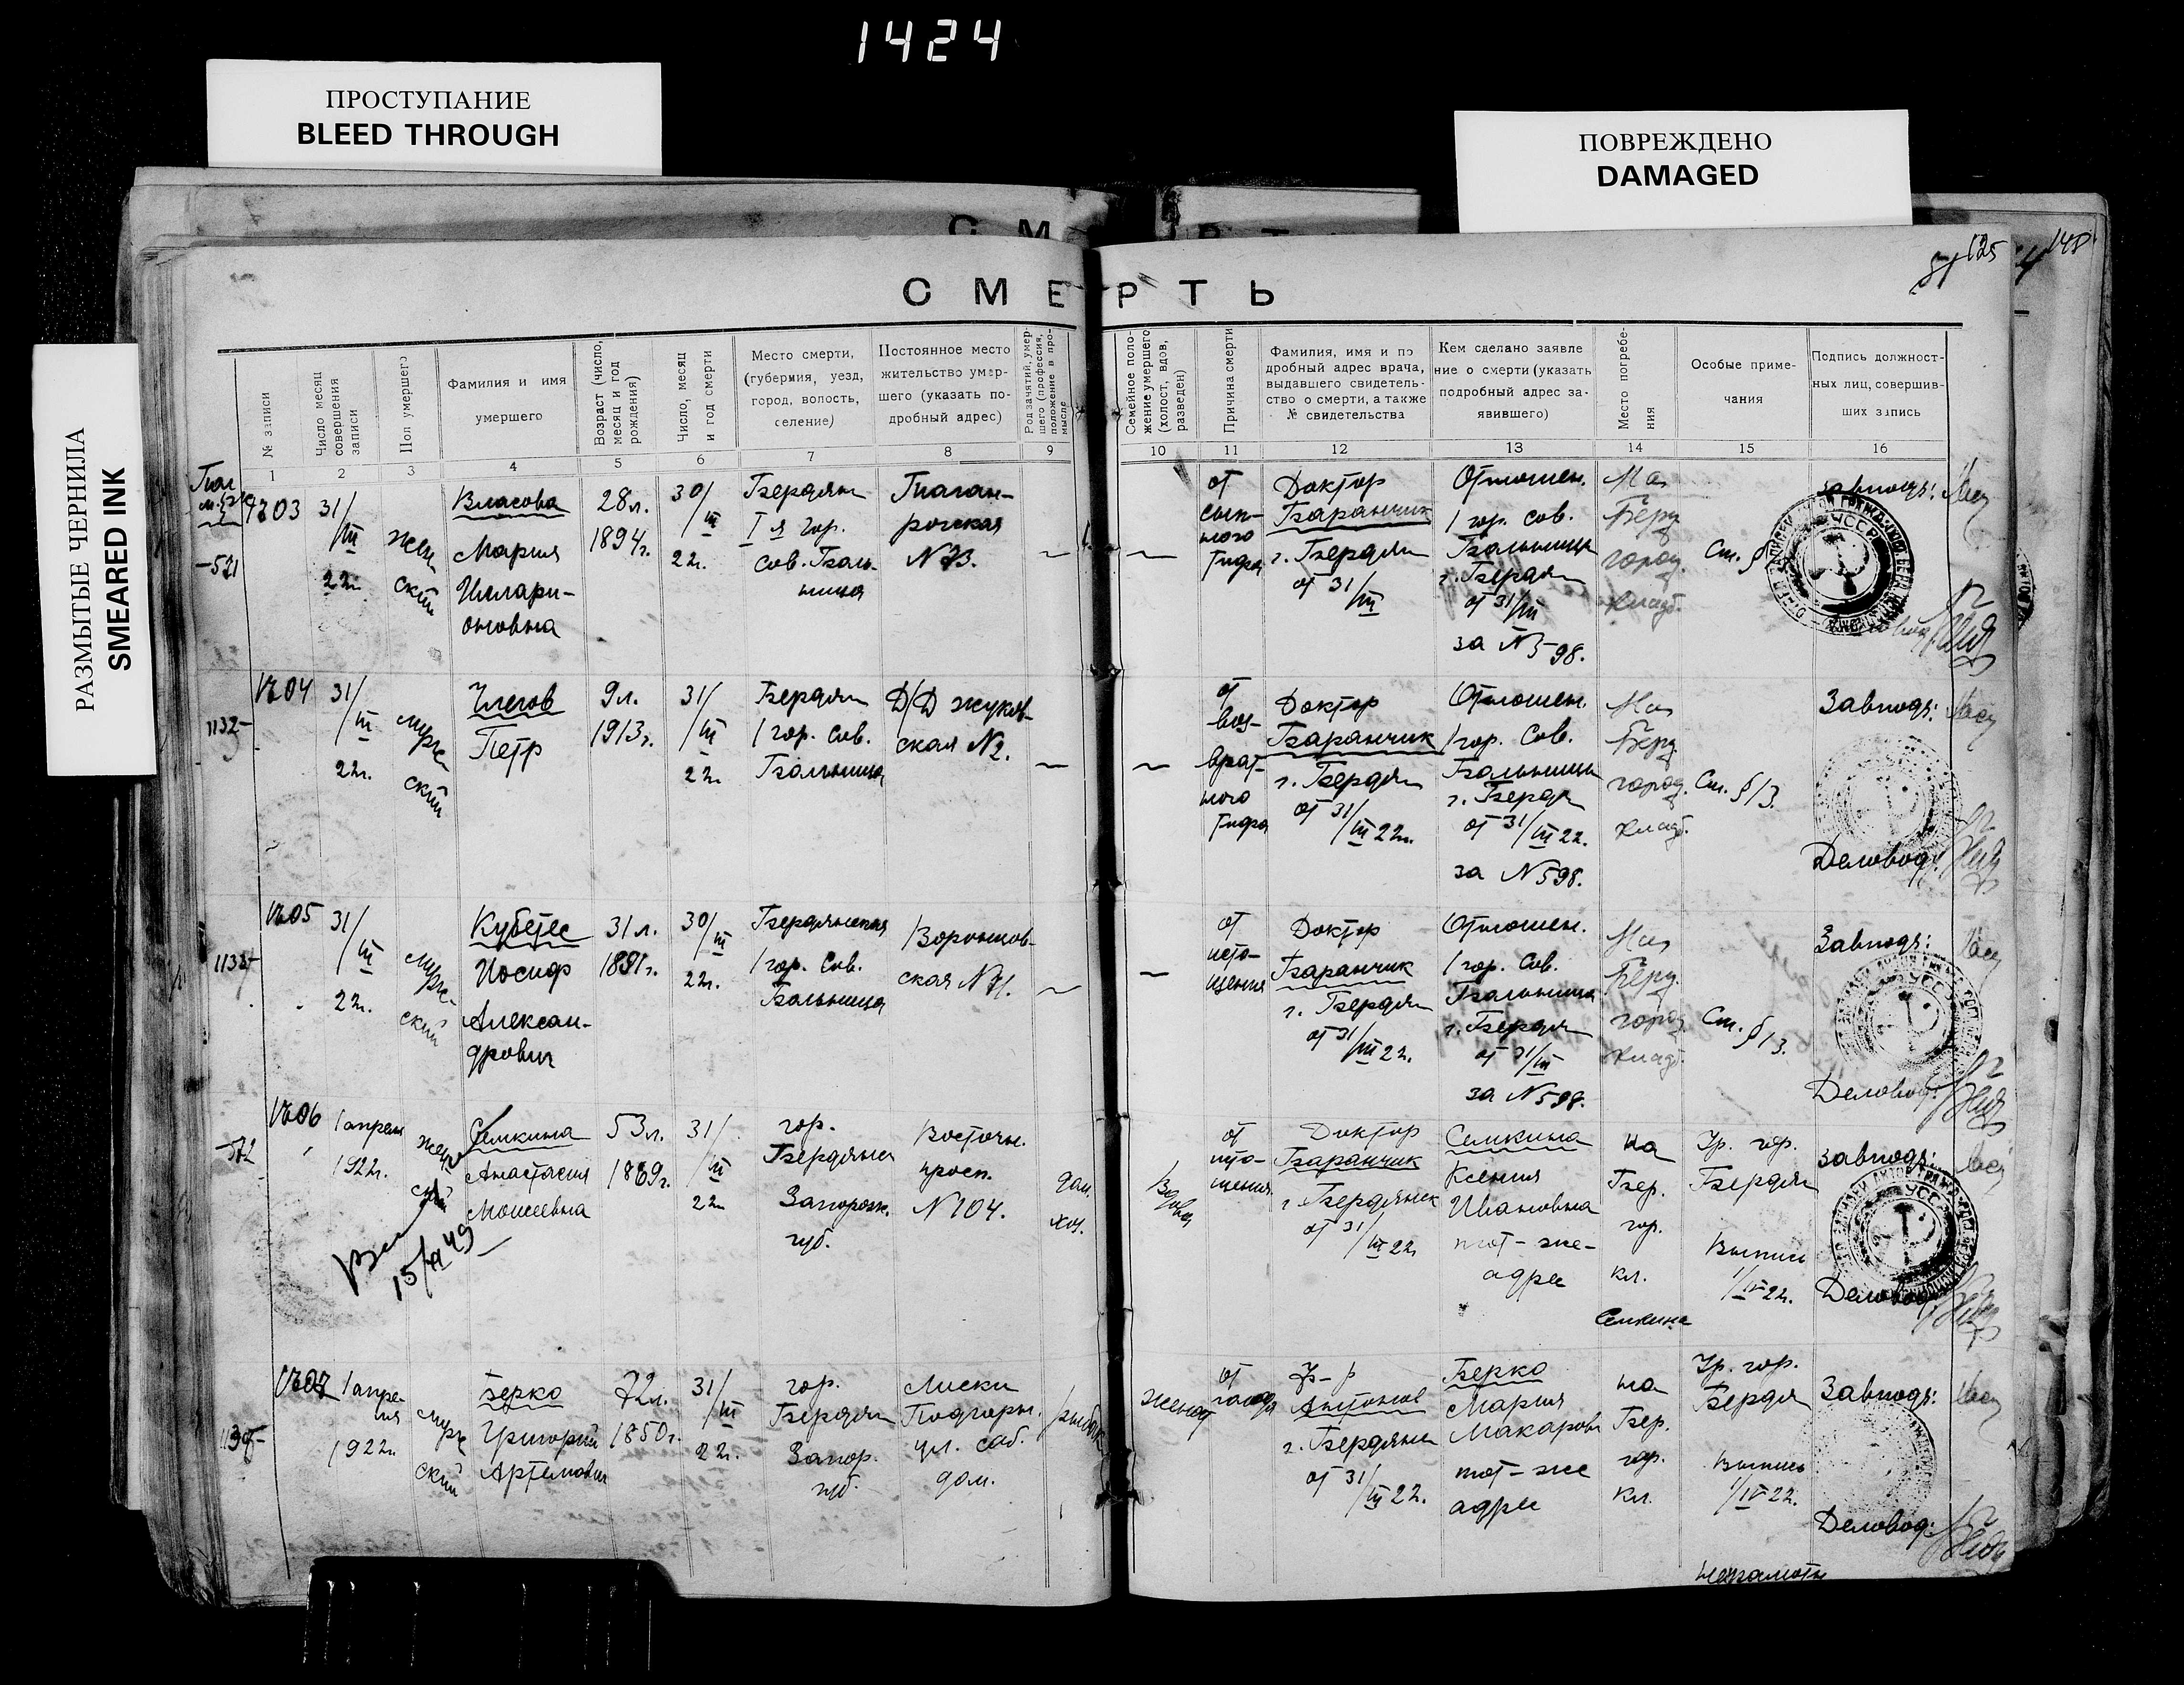 1424
ПРОСТУПАНИЕ
BLEED THROUGH
ПОВРЕЖДЕНО
DAMAGED
РАЗМЫТЫЕ ЧЕРНИЛА
SMEARED INK
СМЕРТЬ
125
№ записи
Число месяц совершения записи
Пол умершего
Фамилия и имя
умершего
Возраст (число, месяц и год рождения)
Число, месяц и год смерти
Место смерти,
(губермия, уезд,
город, волость,
селение)
Постоянное место
жительство умер-
шего (указать по-
дробный адрес)
Род занятий, умер-
шего (профессия,
положение в про-
мысле
Семейное поло-
жение умершего
(холост, вдов,
разведен)
Причина смерти
Фамилия, имя и по
дробный адрес врача,
выдавшего свидетель-
ство о смерти, а также
№ свидетельства
Кем сделано заявле
ние о смерти (указать
подробный адрес за-
явившего)
Место погребе-
ния
Особые приме-
чания
Подпись должност-
ных лиц, совершив-
ших запись
1 2 3 4 5 6 7 8 9 10 11 12 13 14 15 16
31/III
22г.
жен-
ский
Власова
Мария
Иллари-
оновна
28л.
1894г.
30/III
22г.
Бердян
I я гор.
сов. Боль-
ница
Таган-
рогская
от
сып-
ного
тифа
Доктор
Баранчик
г. Бердян
от 31/III
Отношен.
1 гор. сов.
Больницы
г. Бердян
от 31/III
за №598.
На
Берд.
город.
кладб.
См. §
Завподз:
1132
31/III
22г.
муж-
ский
Чпегов
Петр
9л.
1913г.
31/III
22г.
Бердян
1 гор. Сов.
Больница
Д/Д жуков-
ская №2.
от
воз-
врат-
ного
тифа
Доктор
Баранчик
г. Бердян
от 31/III 22г.
Отношен.
1 гор. Сов.
Больницы
г. Бердян
от 31/III 22.
за №598.
На
Берд.
город.
кладб.
См. §13.
Завподз:
Деловод:
31/III
22г.
муж-
ский
Кубетес
Иосиф
Алексан-
дрович
31л.
1891г.
30/III
22г.
Бердянская
1 гор. Сов.
Больница
Воронцов-
ская
от
исто-
щения
Доктор
Баранчик
г. Бердян
от 31/III 22г.
Отношен.
1 гор. Сов.
Больница
г. Бердян
от 31/III
за №598.
На
Берд.
город
кладб.
См. §13.
Завподз:
Деловод:
572
1 апрел
1922г.
жен
ский
Семкина
Анастасия
Моисеевна
53л.
1869г.
31/III
22г
гор.
Бердянск
Запорож.
губ.
Восточн.
просп.
№104.
дом.
хоз.
Вдова
от
исто-
щения
Доктор
Баранчик
г. Бердянск
от 31/III 22
Семкина
Ксения
Ивановна
тот-же-
адрес
на
Бер.
гор.
кл.
Семкина
Гр. гор.
Бердян
Выпись
1/IV 22г.
Завподз:
Деловод:
15/ 49
1 апре-
ля
1922г.
муж
ский
Берко
Григорий
Артемович
72л.
1850г.
31/III
22г.
гор.
Бердян
Запор.
губ.
Лиски
Подгорн.
ул. соб.
дом.
рыбак
женат
от
голода
Ф-р
Антонов
г. Бердянск
от 31/III 22г.
Берко
Мария
Макаровн
тот-же
адрес
на
Бер.
гор.
кл.
Гр. гор.
Бердян
Выпись
1/IV 22г.
неграмотн
Завподз:
Деловод: